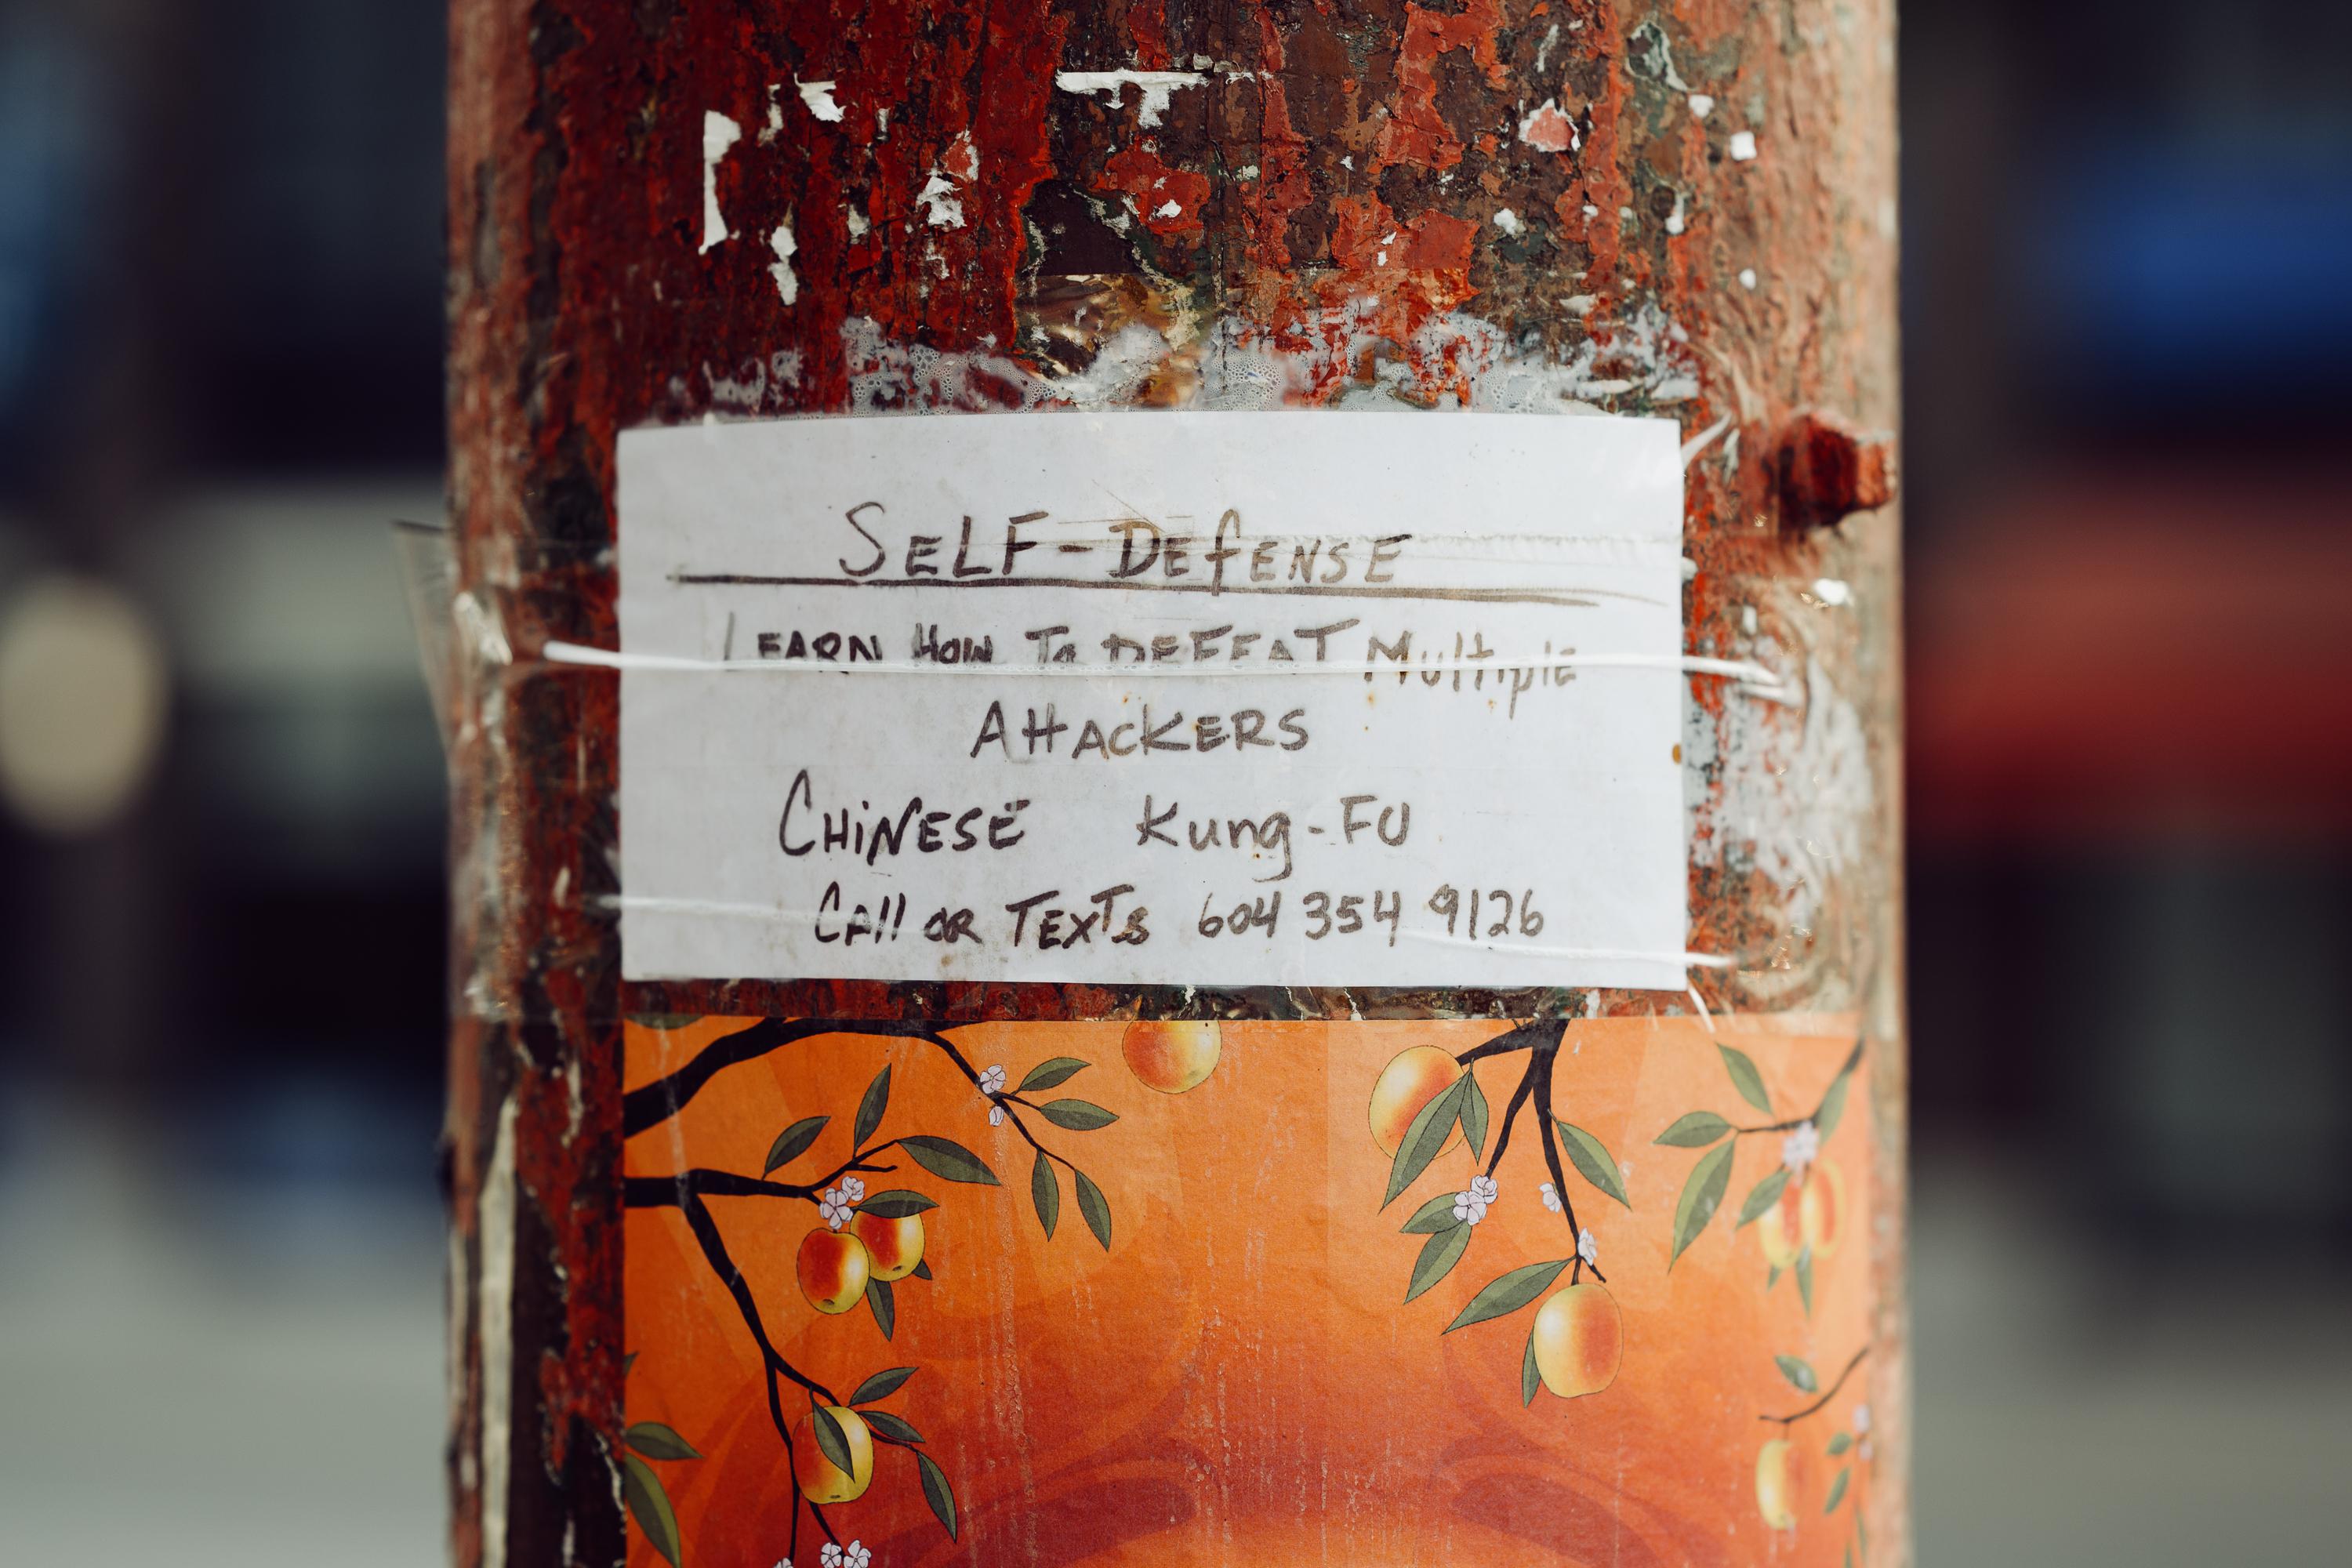 SELF-DEfENSE
LEARN HOW To DEFEAT Multiple
AttACKERS
CHiNESE Kung-FU
CAll OR TEXTS 604 354 9126